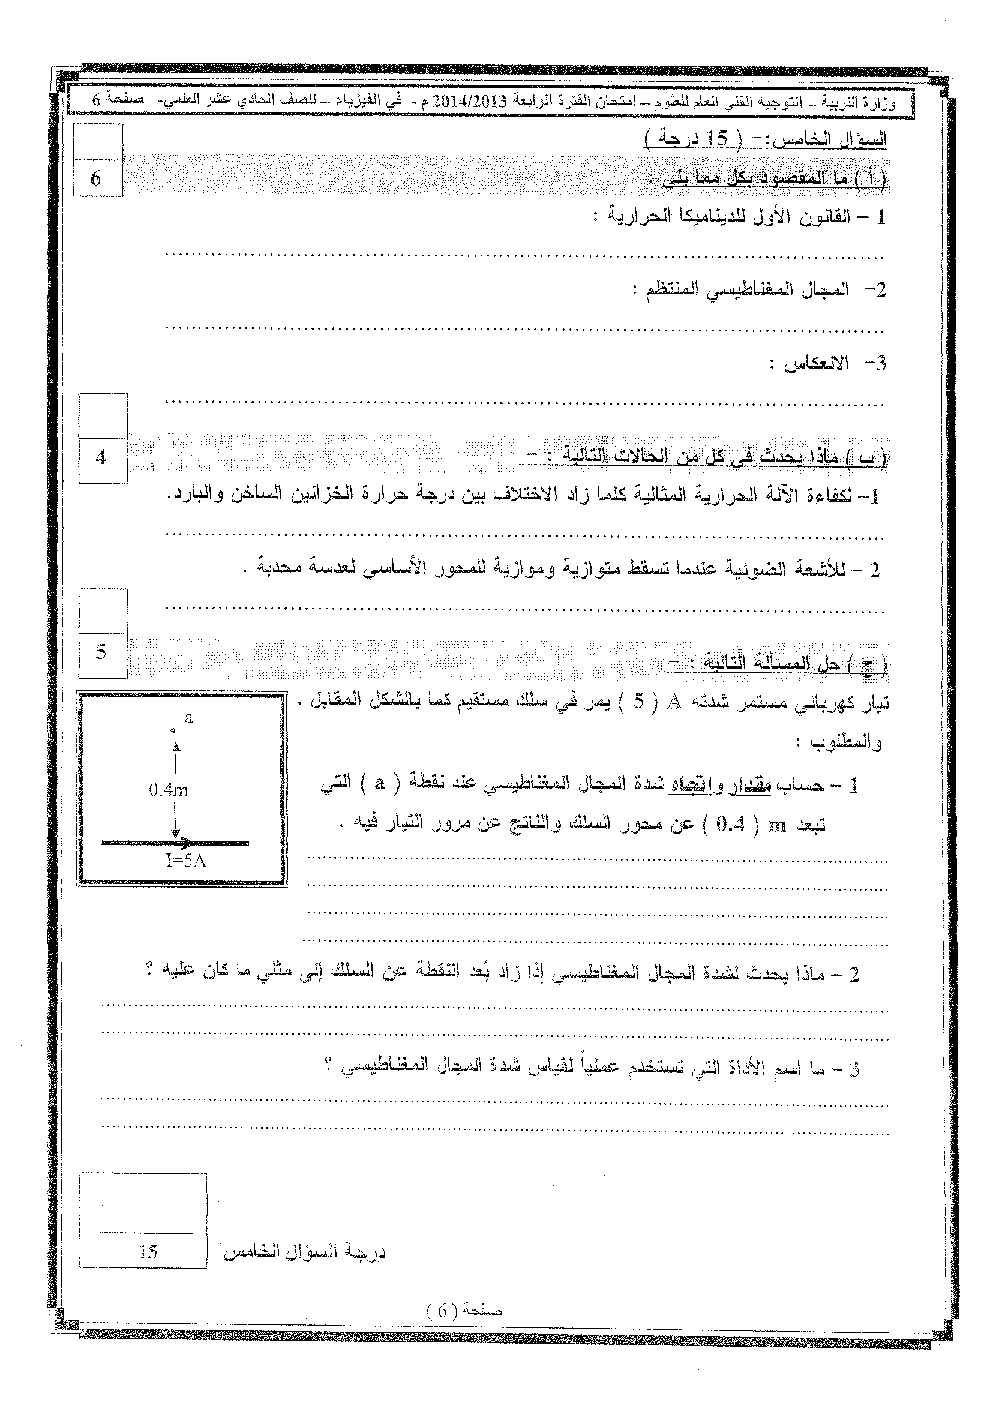 وزارة التربية – التوجيه الفني العام للعلوم – إمتحان الفترة الرابعة 2014/2013 م - في الفيزياء – للصف الحادي عشر العلمي- صفحة 6
السؤال الخامس:– ( 15 درجة )
6
( أ ) ما المقصود بكل مما يلي
1 – القانون الأول للديناميكا الحرارية :
2- المجال المغناطيسي المنتظم :
3- الانعكاس :
4
( ب ) ماذا يحدث في كل من الحالات التالية : –
1– لكفاءة الآلة الحرارية المثالية كلما زاد الاختلاف بين درجة حرارة الخزانين الساخن والبارد.
2 – للأشعة الضوئية عندما تسقط متوازية وموازية للمحور الأساسي لعدسة محدبة .
5
( ج ) حل المسألة التالية : –
تيار كهربائي مستمر شدته A ( 5 ) يمر في سلك مستقيم كما بالشكل المقابل .
والمطلوب :
1 – حساب مقدار وإتجاه شدة المجال المغناطيسي عند نقطة ( a ) التي
تبعد m ( 0.4 ) عن محور السلك والناتج عن مرور التيار فيه .
a
0.4m
I=5A
2 – ماذا يحدث لشدة المجال المغناطيسي إذا زاد بُعد النقطة عن السلك إلى مثلي ما كان عليه ؟
3 – ما اسم الأداة التي تستخدم عملياً لقياس شدة المجال المغناطيسي ؟
15
درجة السؤال الخامس
صفحة ( 6 )